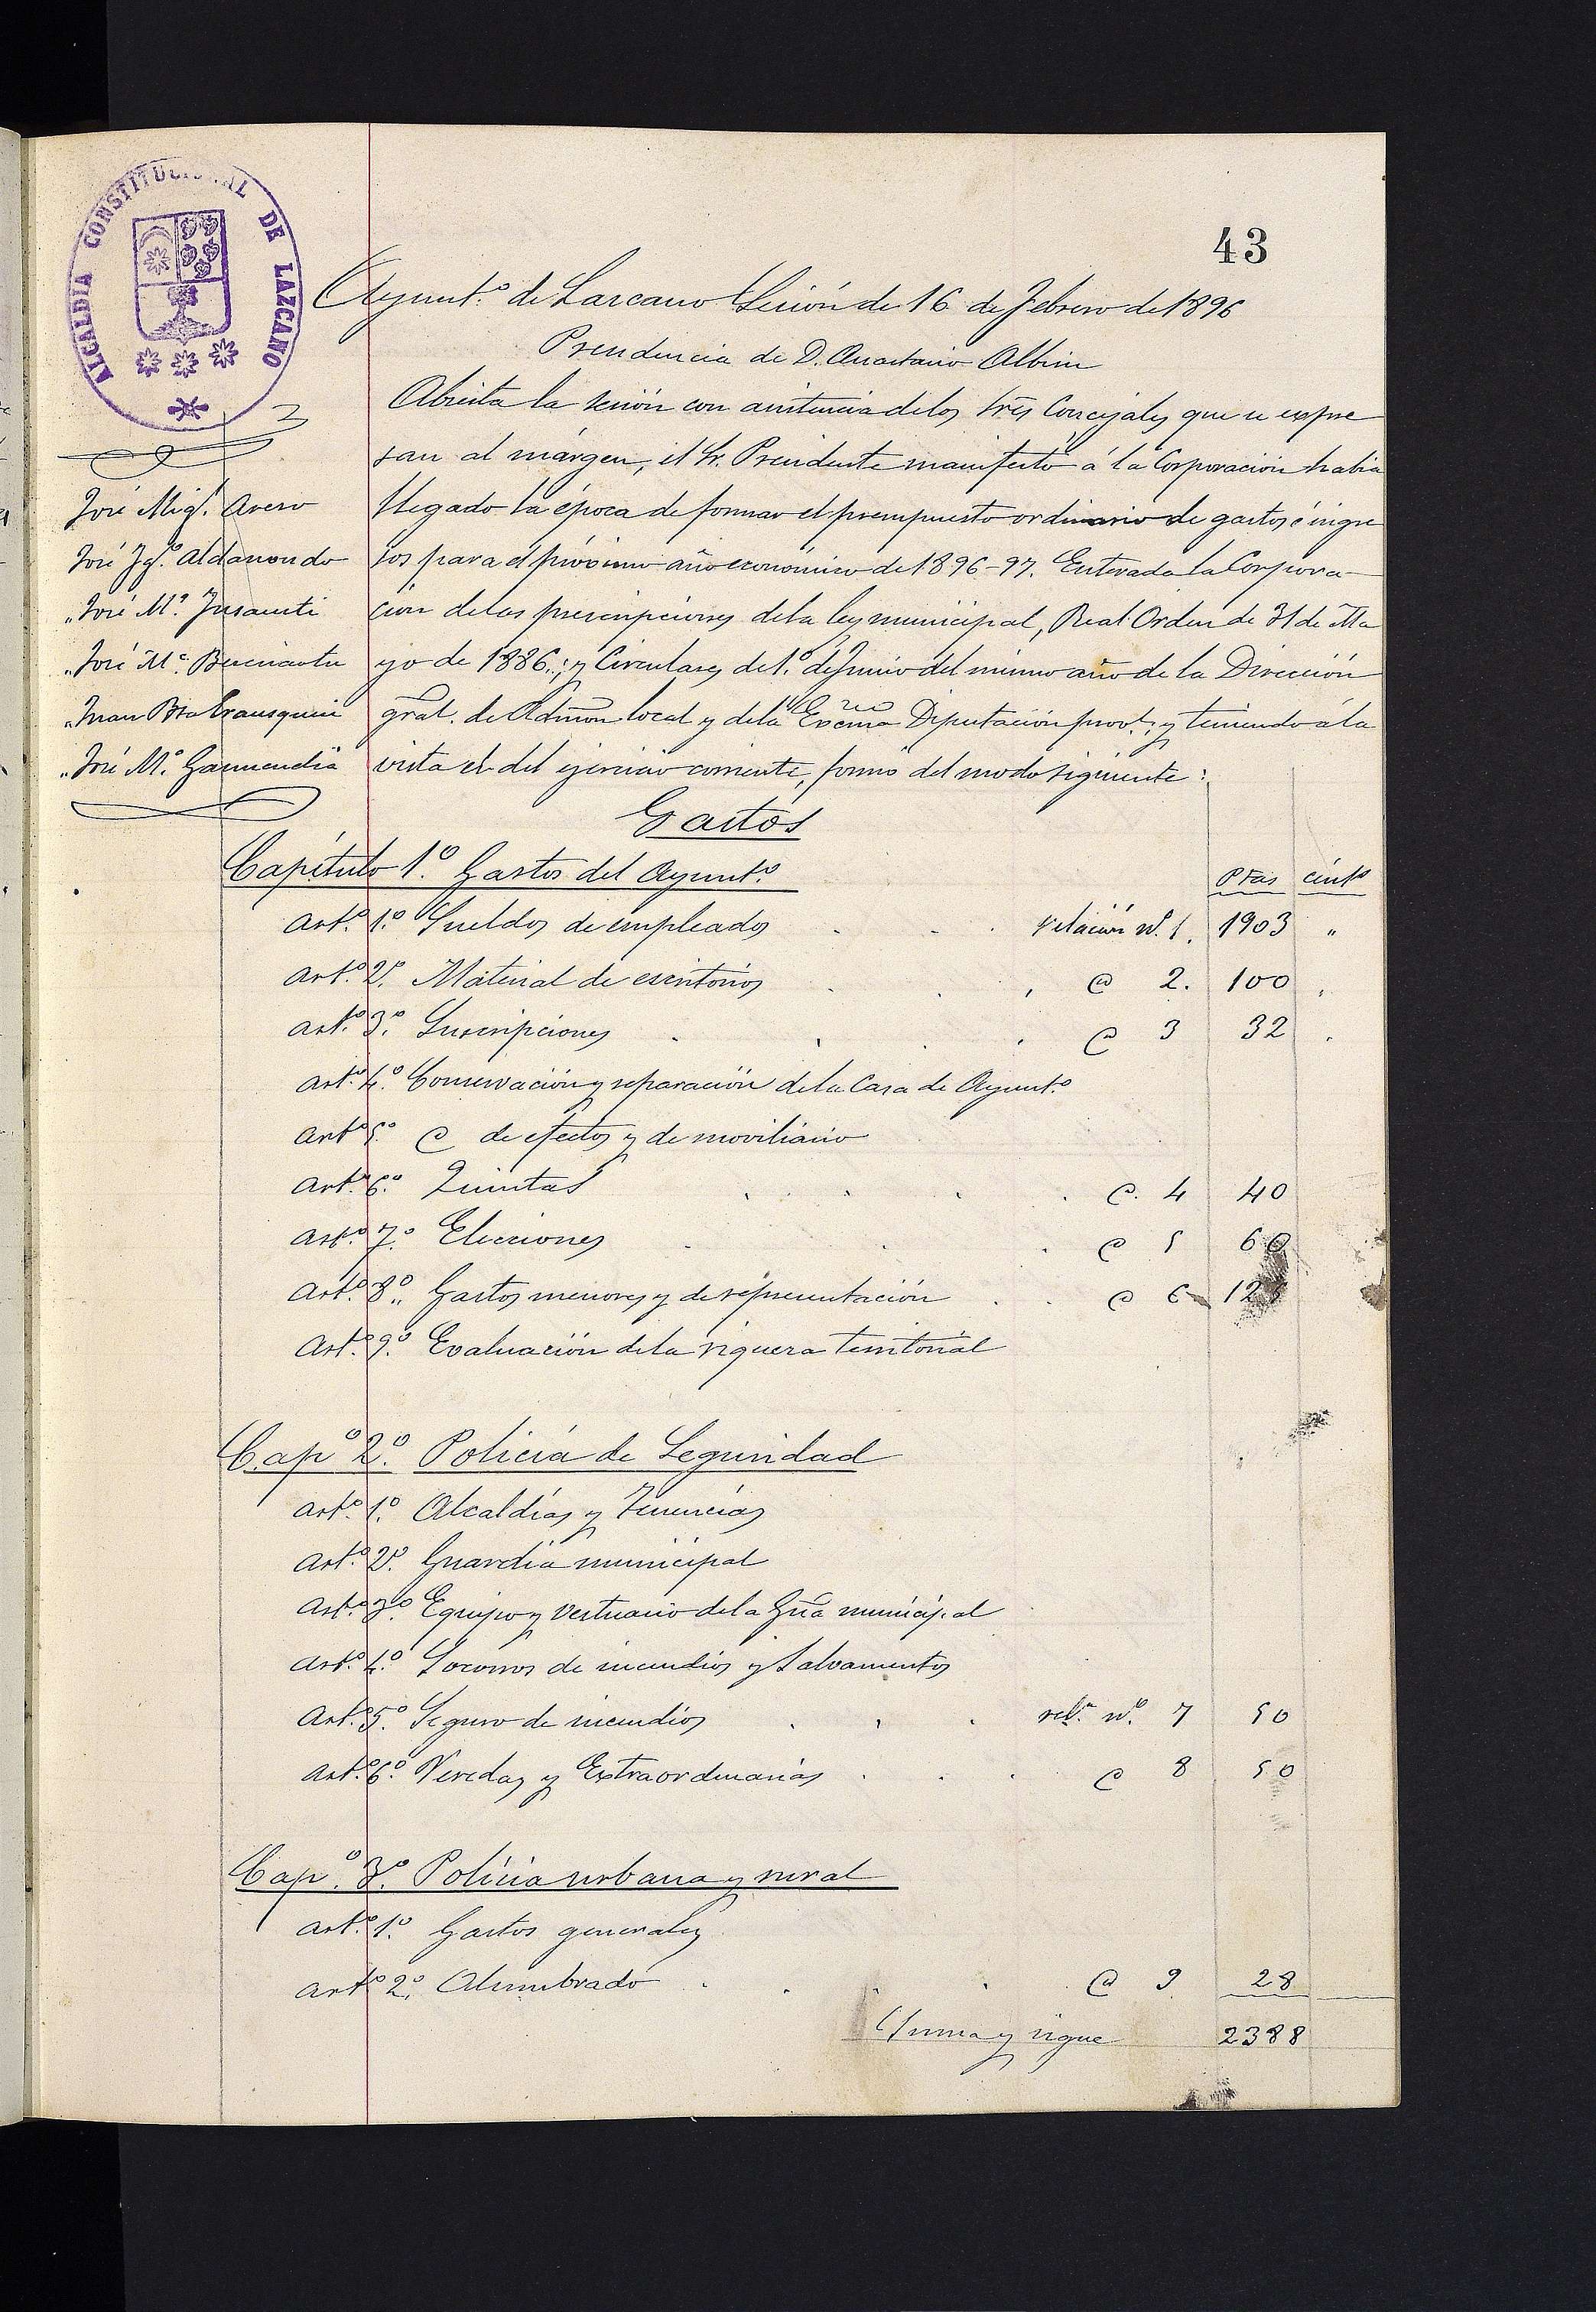 43
ALCALDIA CONSTITUCIONAL DE LAZCANO
Ayunt.º de Lazcano Sesión de 16 de Febrero de 1896
Presidencia de D. Anastasio Albisu
Abierta la sesión con asistencia de los tres Concejales que se expre
san al márgen, el Sr. Presidente manifestó á la Corporación habia
llegado la época de formar el presupuesto ordinario de gastos é ingre
sos para el próximo año económico de 1896-97. Enterada la Corpora-
ción de las prescripciones de la ley municipal, Real Orden de 31 de Ma
yo de 1886.; y Circulares de 1.º de Junio del mismo año de la Dirección
gral. de Admon local y de la Excma Diputación provl.; y teniendo á la
vista el del ejercicio corriente, formó del modo siguiente:
José Migl. Aseso
José Ig.º Aldanondo
"José M.ª Insausti
"José M.ª Beneiartu
"Juan Bta Erausquin
"José M.ª Garmendia
Gastos
Capítulo 1.º Gastos del Ayunt.º
Ptas cénts
art.º 1.º Sueldos de empleados . . . relación n.º 1. 1903 "
art.º 2.º Material de escritorios . . , @ 2. 100 ,
art.º 3.º Suscripciones . . . . @ 3 32 .
art.º 4.º Conservación y reparación de la Casa de Ayunt.º
art.º 5.º @ de efectos y de moviliario
art.º 6.º Quintas . . . . @. 4 40
art.º 7.º Elecciones . . . @ 5 60
art.º 8.º Gastos menores y de representación . . @ 6 125
art.º 9.º Evaluación de la riqueza territorial
Cap.º 2.º Policía de Seguridad
art.º 1.º Alcaldías y Tenencias
art.º 2.º Guardia municipal
art.º 3.º Equipo y vestuario de la Gũa municipal
art.º 4.º Socorros de incendios y Salvamentos
art.º 5.º Seguro de incendios . . . rel.ª n.º 7 50
art.º 6.º Veredas y Extraordinarias . . . @ 8 50
Cap.º 3.º Policia urbana y rural
art.º 1.º Gastos generales
art.º 2.º Alumbrado . . . . @ 9 28
Suma y sigue 2388